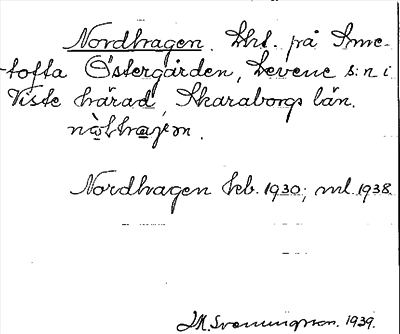 Nordhagen. Lht. på Sme-
tofta Östergården, Levene s:n i
Viste härad, Skaraborgs län.
Nordhagen Jeb. 1930; ml. 1938
J.M. Svenningsson. 1939.